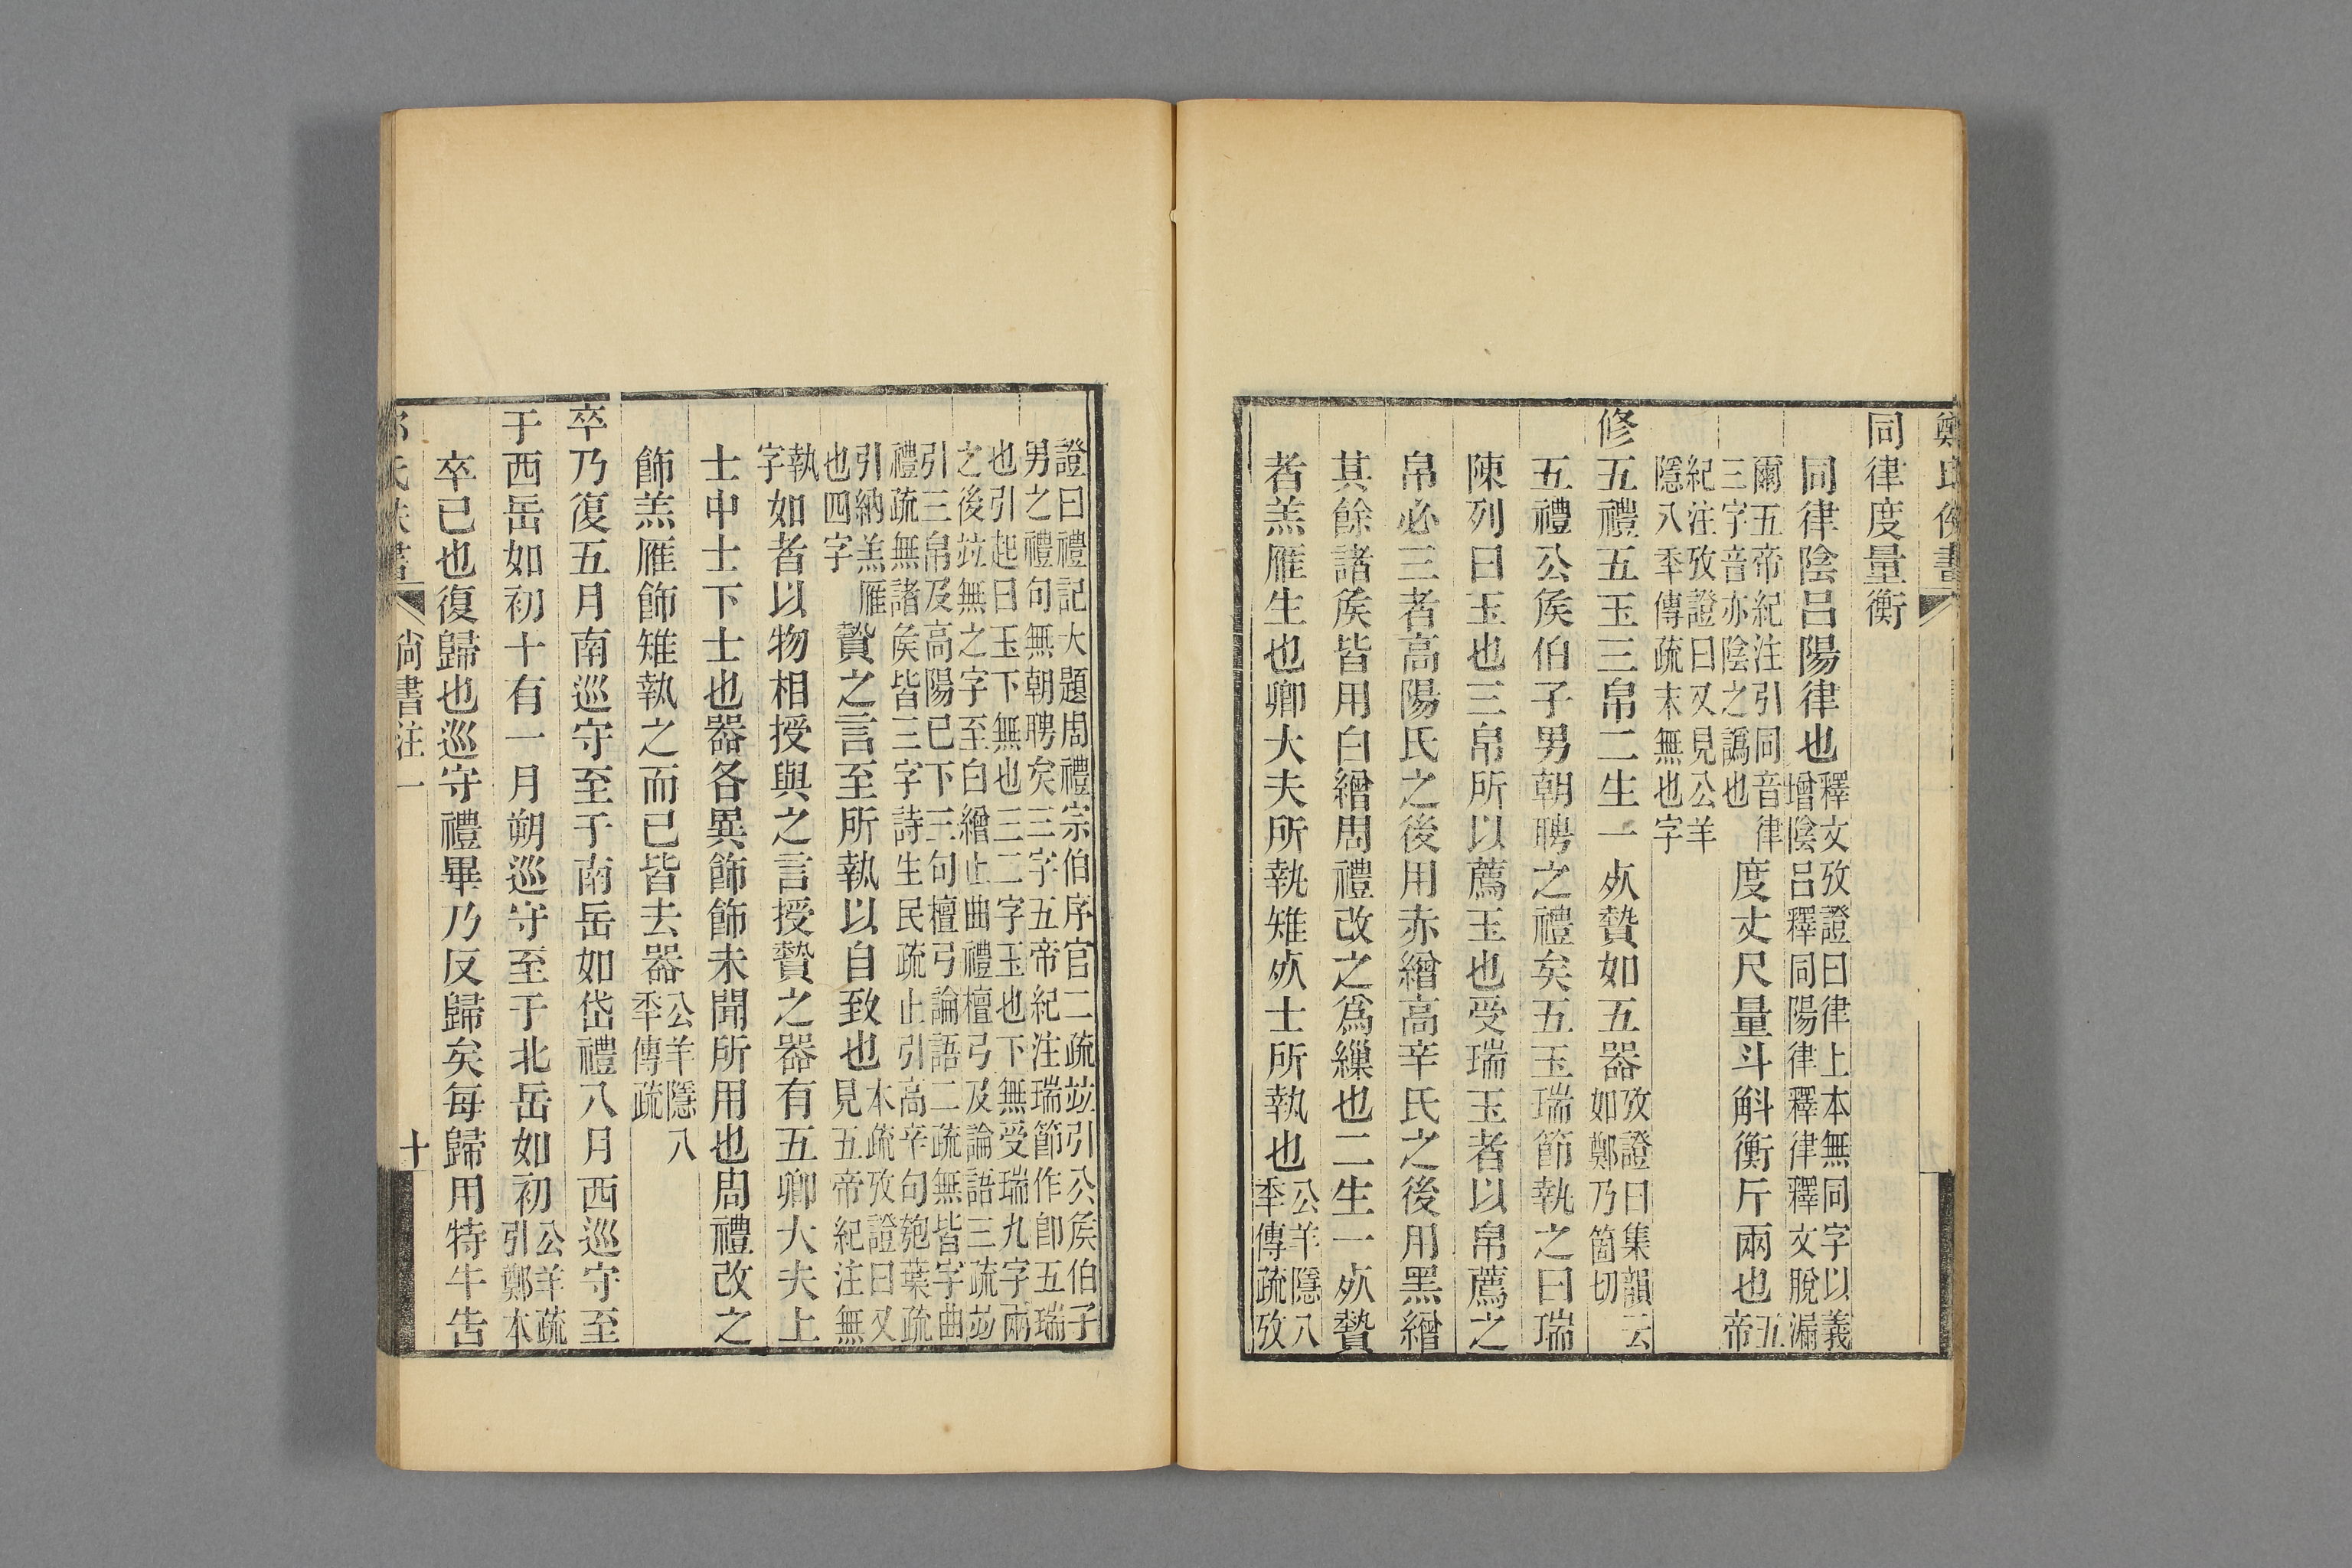 鄭氏佚書
同律度量衡
同律陰呂陽律也釋文攷證曰律上本無同字以義
增陰呂釋同陽律釋律釋文脫漏
爾五帝紀注引同音律
三字音亦陰之譌也度丈尺量斗斛衡斤兩也五
帝
紀注攷證曰又見公羊
隱八秊傳疏末無也字
修五禮五玉三帛二生一𣦸贄如五器攷證曰集韻云
如鄭乃箇切
五禮公矦伯子男朝聘之禮矣五玉瑞節執之曰瑞
陳列曰玉也三帛所以薦玉也受瑞玉者以帛薦之
帛必三者高陽氏之後用赤繒高辛氏之後用黑繒
其餘諸矦皆用白繒周禮改之爲繅也二生一𣦸贄
者羔雁生也卿大夫所執雉𣦸士所執也公羊隱八
秊傳疏攷
證曰禮記大題周禮宗伯序官二疏竝引公矦伯子
男之禮句無朝聘矣三字五帝紀注瑞節作卽五瑞
也引起曰玉下無也三二字玉也下無受瑞九字兩
之後竝無之字至白繒止曲禮檀弓及論語三疏竝
引三帛及高陽已下三句檀弓論語二疏無皆字曲
禮疏無諸矦皆三字詩生民疏止引高辛句匏葉疏
引納羔雁
也四字贄之言至所執以自致也本疏攷證曰又
見五帝紀注無
執
字如者以物相授與之言授贄之器有五卿大夫上
士中士下士也器各異飾飾未聞所用也周禮改之
飾羔雁飾雉執之而已皆去器公羊隱八
秊傳疏
卒乃復五月南巡守至于南岳如岱禮八月西巡守至
于西岳如初十有一月朔巡守至于北岳如初公羊疏
引鄭本
卒已也復歸也巡守禮畢乃反歸矣每歸用特牛告
尙書注一
十